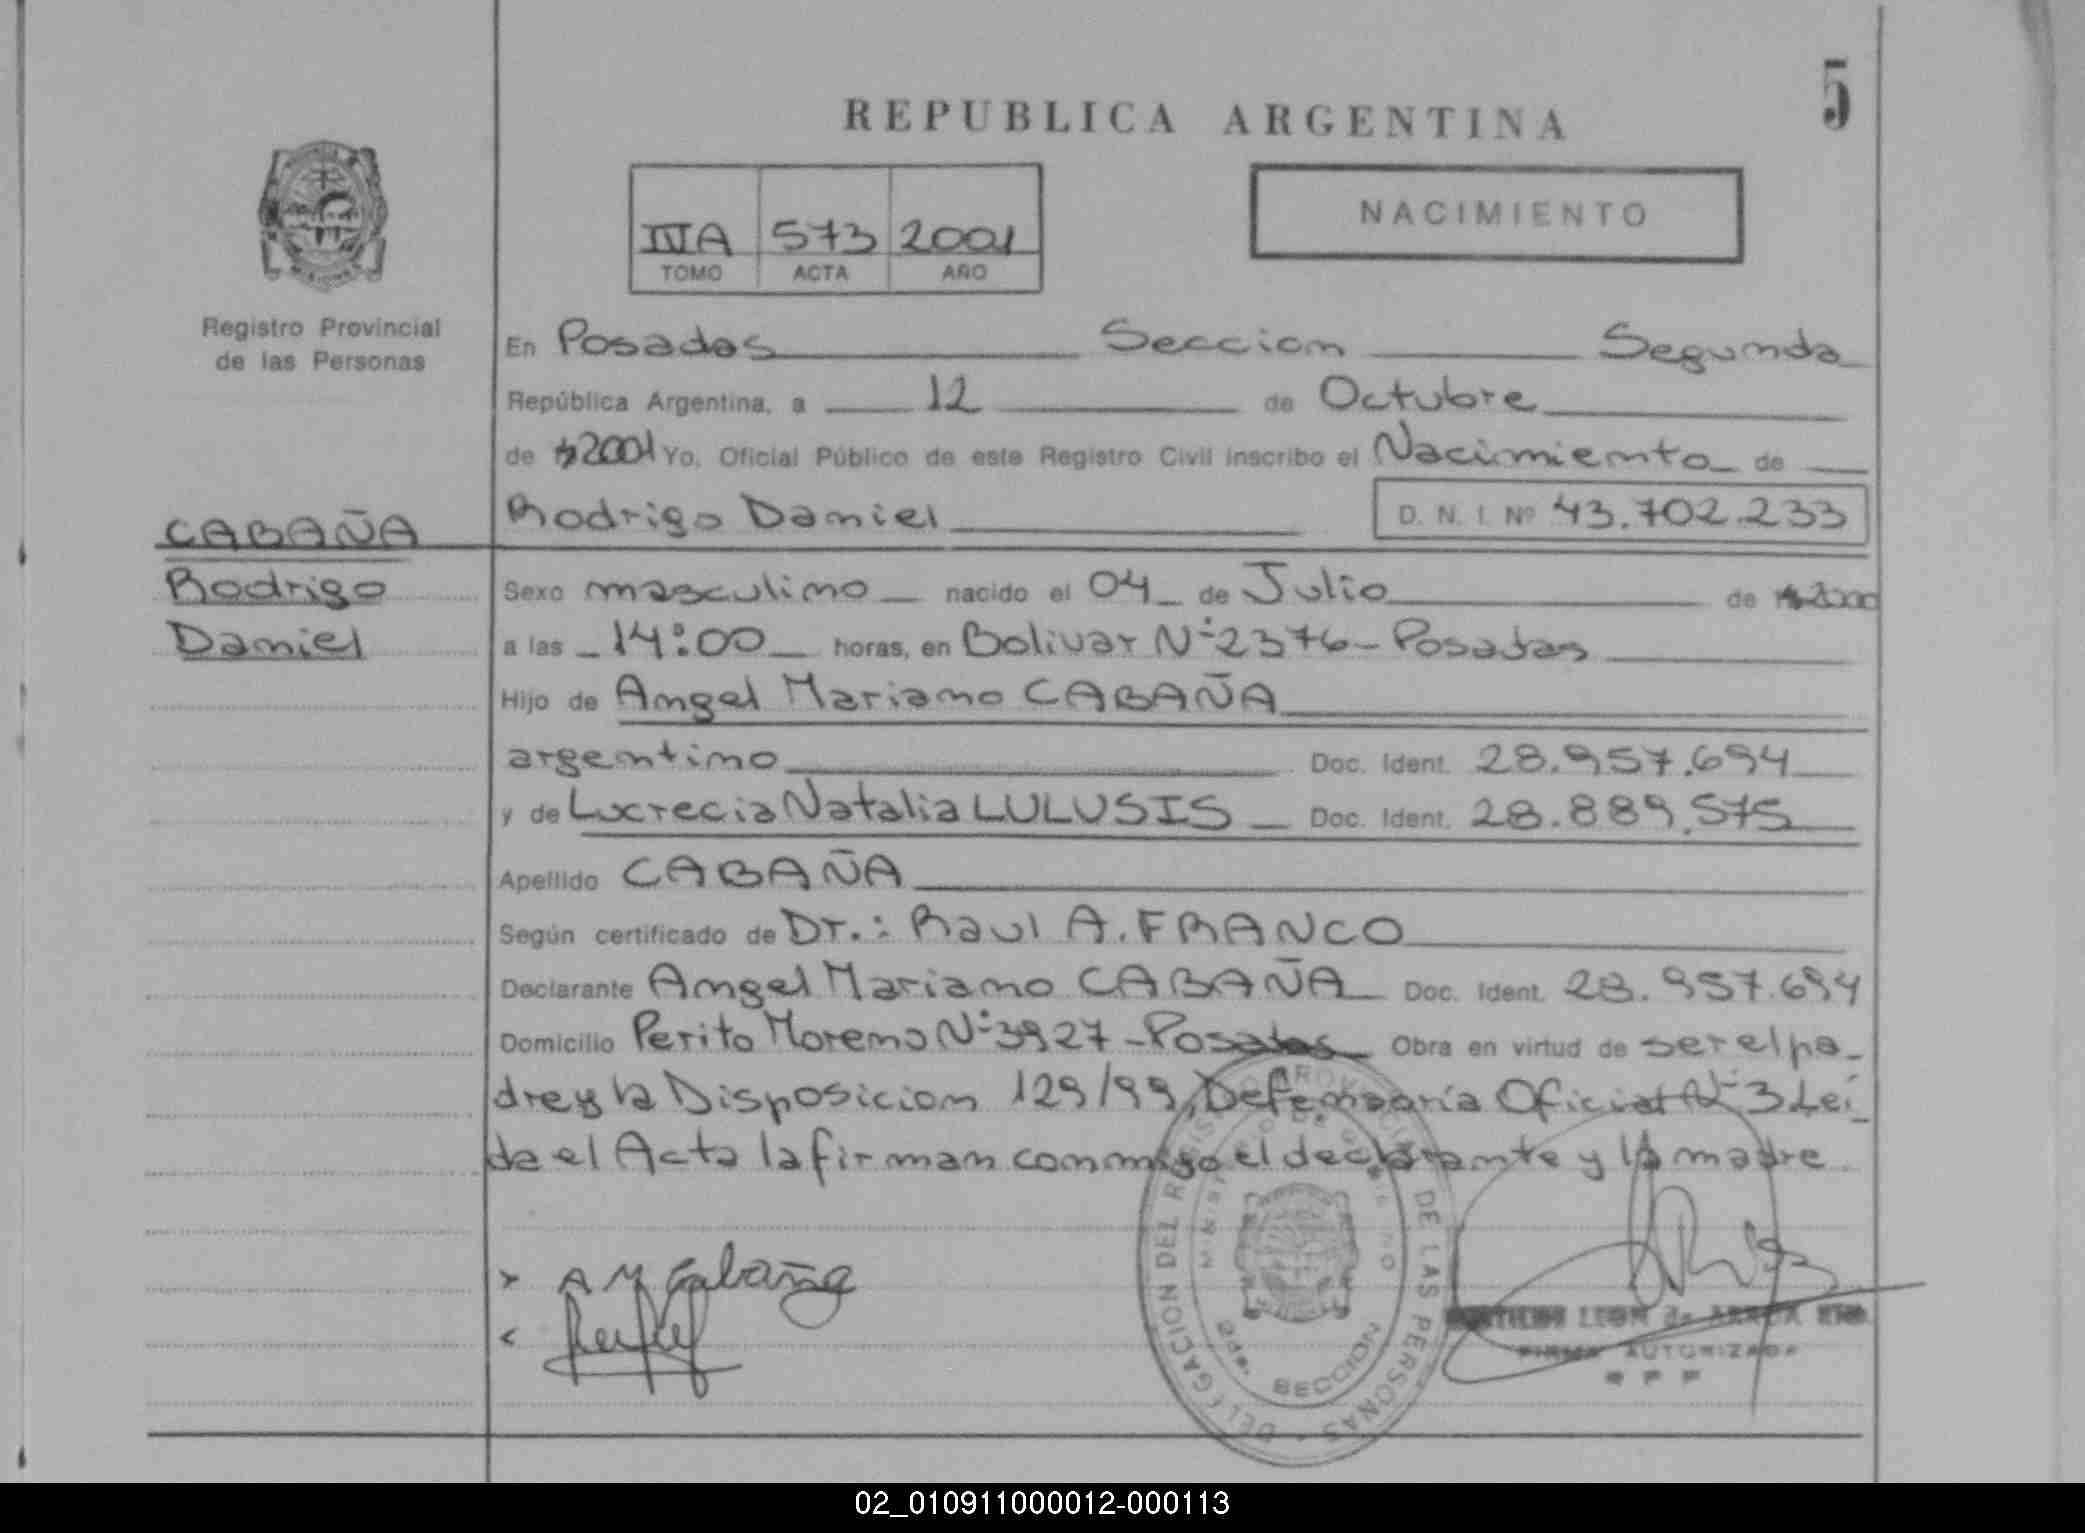 5
REPUBLICA ARGENTINA
NACIMIENTO
IVA 573 2001
TOMO ACTA AÑO
Registro Provincial
de las Personas
En Posadas Seccion Segunda
República Argentina, a 12 de Octubre
de 2001 Yo, Oficial Público de este Registro Civil inscribo el Nacimiento de
Rodrigo Daniel D. N. I. Nº 43.702.233
CABAÑA
Rodrigo
Daniel
Sexo masculino nacido el 04 de Julio de 2000
a las 14:00 horas, en Bolivar Nº 2376 - Posadas
Hijo de Angel Mariano CABAÑA
argentino Doc. Ident. 28.957.694
y de Lucrecia Natalia LULUSIS Doc. Ident. 28.889.575
Apellido CABAÑA
Según certificado de Dr.: Raul A. FRANCO
Declarante Angel Mariano CABAÑA Doc. Ident. 28.957.694
Domicilio Perito Moreno Nº 3927 - Posadas Obra en virtud de ser el pa-
dre y la Disposicion 129/99, Defensoría Oficial Nº 3. Leí-
da el Acta la firman conmigo el declarante y la madre
A M Cabaña
DELEGACION DEL REGISTRO PROVINCIAL DE LAS PERSONAS
MINISTERIO DE GOBIERNO
2da. SECCION
LEON de
FIRMA AUTORIZADA
02_010911000012-000113